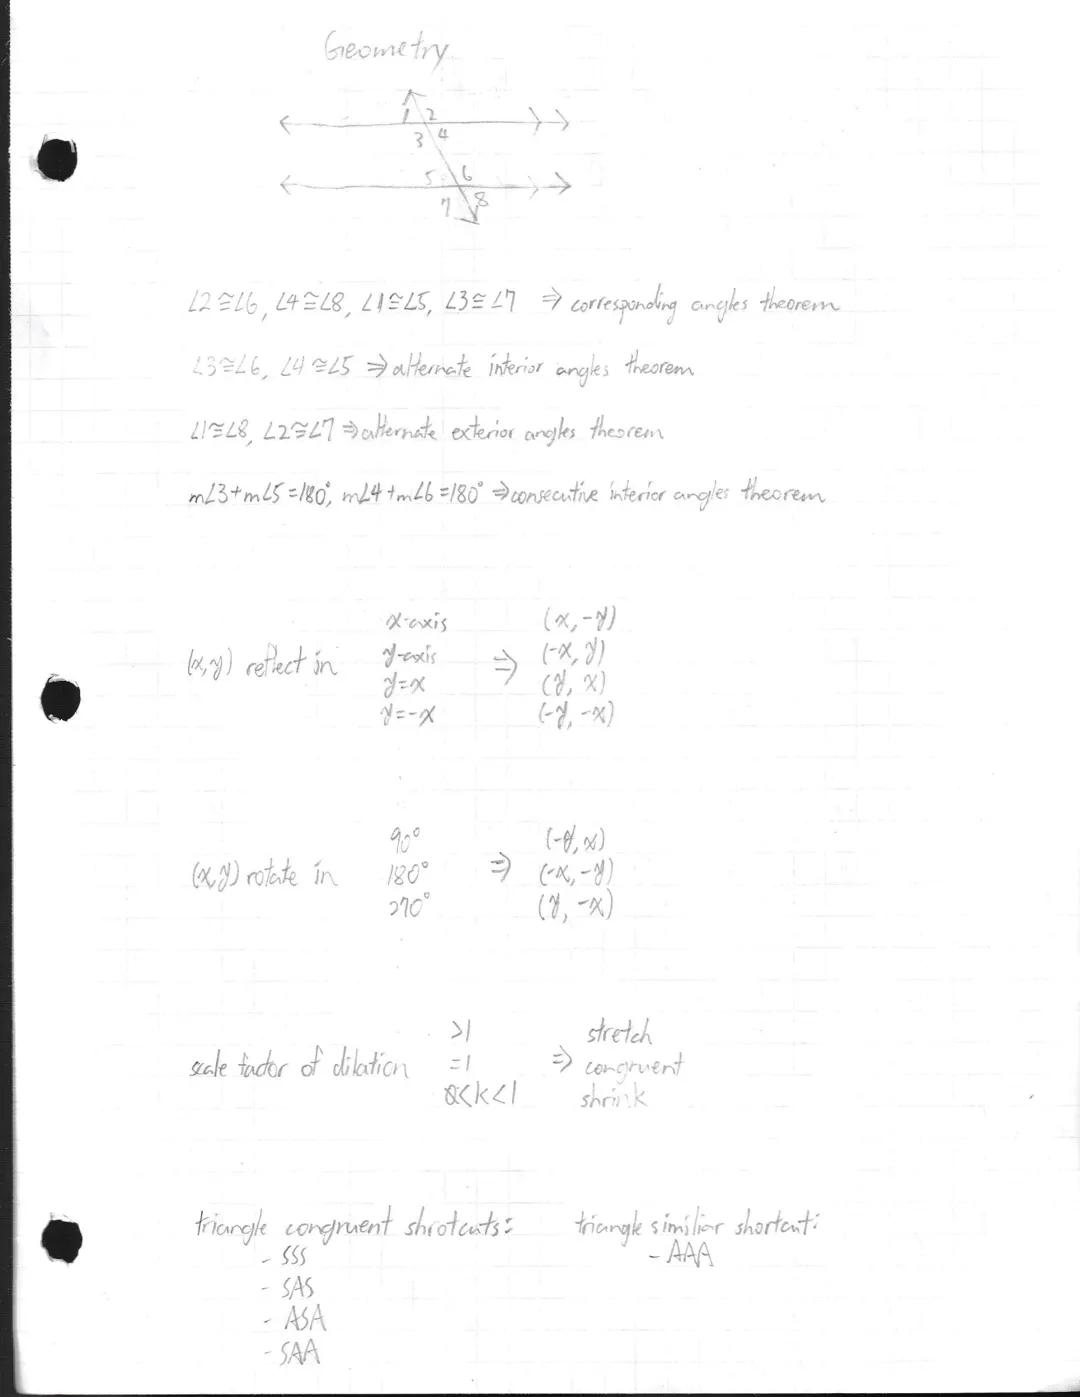 Geometry
1 2
3 4
5 6
7 8
∠2≅∠6, ∠4≅∠8, ∠1≅∠5, ∠3≅∠7 ⇒ corresponding angles theorem
∠3≅∠6, ∠4≅∠5 ⇒ alternate interior angles theorem
∠1≅∠8, ∠2≅∠7 ⇒ alternate exterior angles theorem
m∠3+m∠5=180°, m∠4+m∠6=180° ⇒ consecutive interior angles theorem
x-axis (x,-y)
(x,y) reflect in y-axis ⇒ (-x, y)
y=x (y, x)
y=-x (-y, -x)
90° (-y, x)
(x,y) rotate in 180° ⇒ (-x, -y)
270° (y, -x)
>1 stretch
scale factor of dilation =1 ⇒ congruent
0<k<1 shrink
triangle congruent shrotcuts: triangle similiar shortcut:
- SSS - AAA
- SAS
- ASA
- SAA